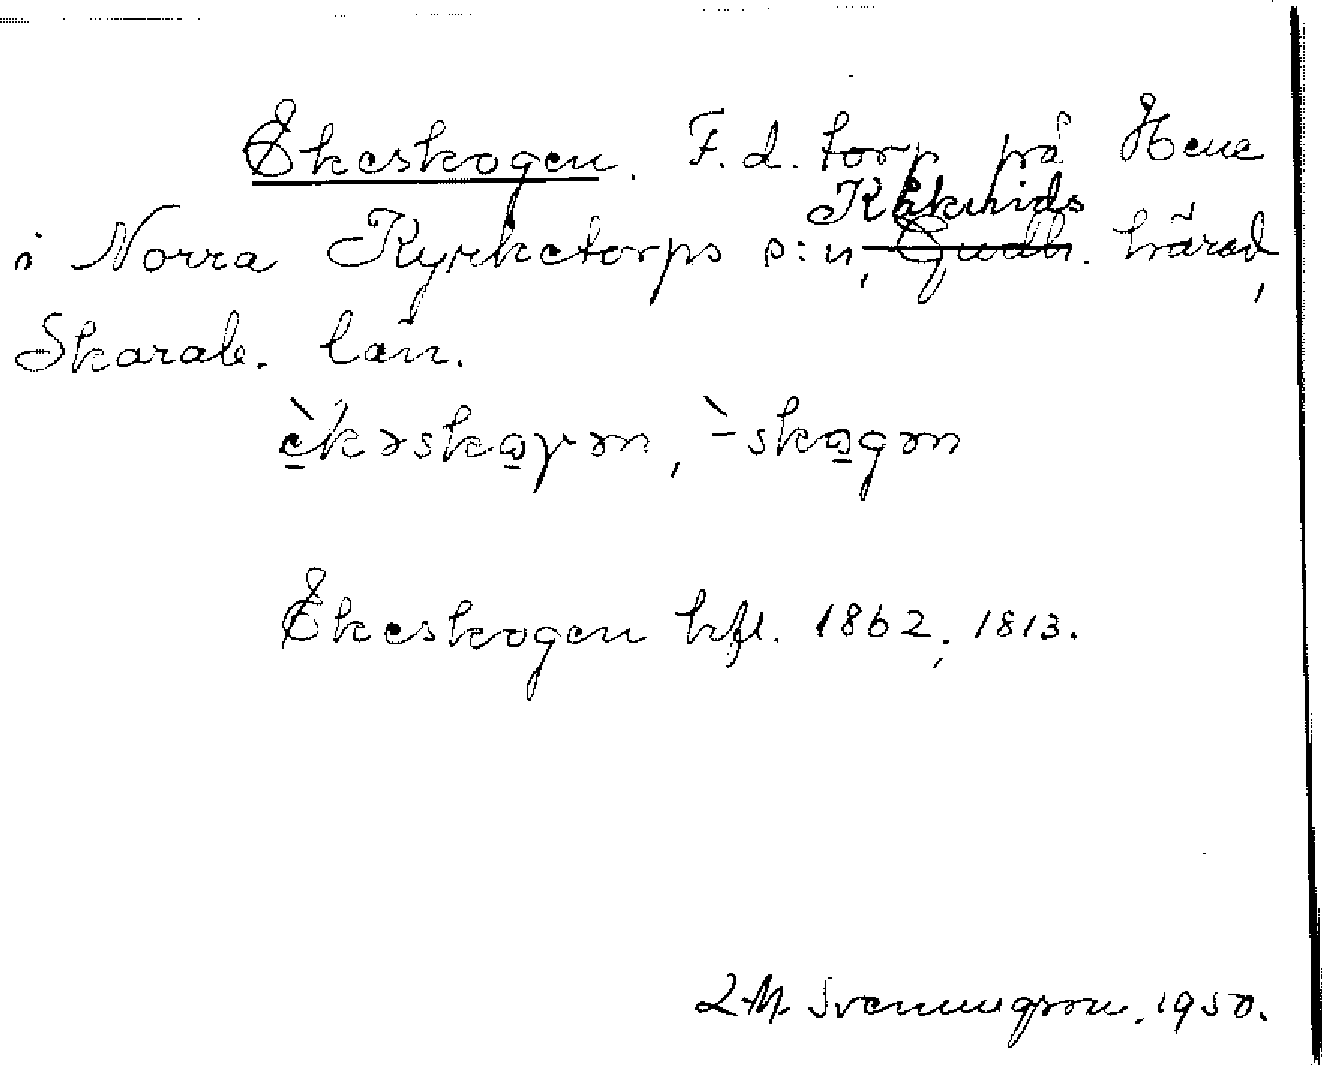 Ekeskogen. F.d. torp på Hene
i Norra Kyrketorps s:n, Kåkinds ~~Gudh.~~ härad,
Skarab. län.
è̱kəsko̱γən, `-sko̱gən
Ekeskogen hfl. 1862, 1813.
L-M Svenungsson. 1950.